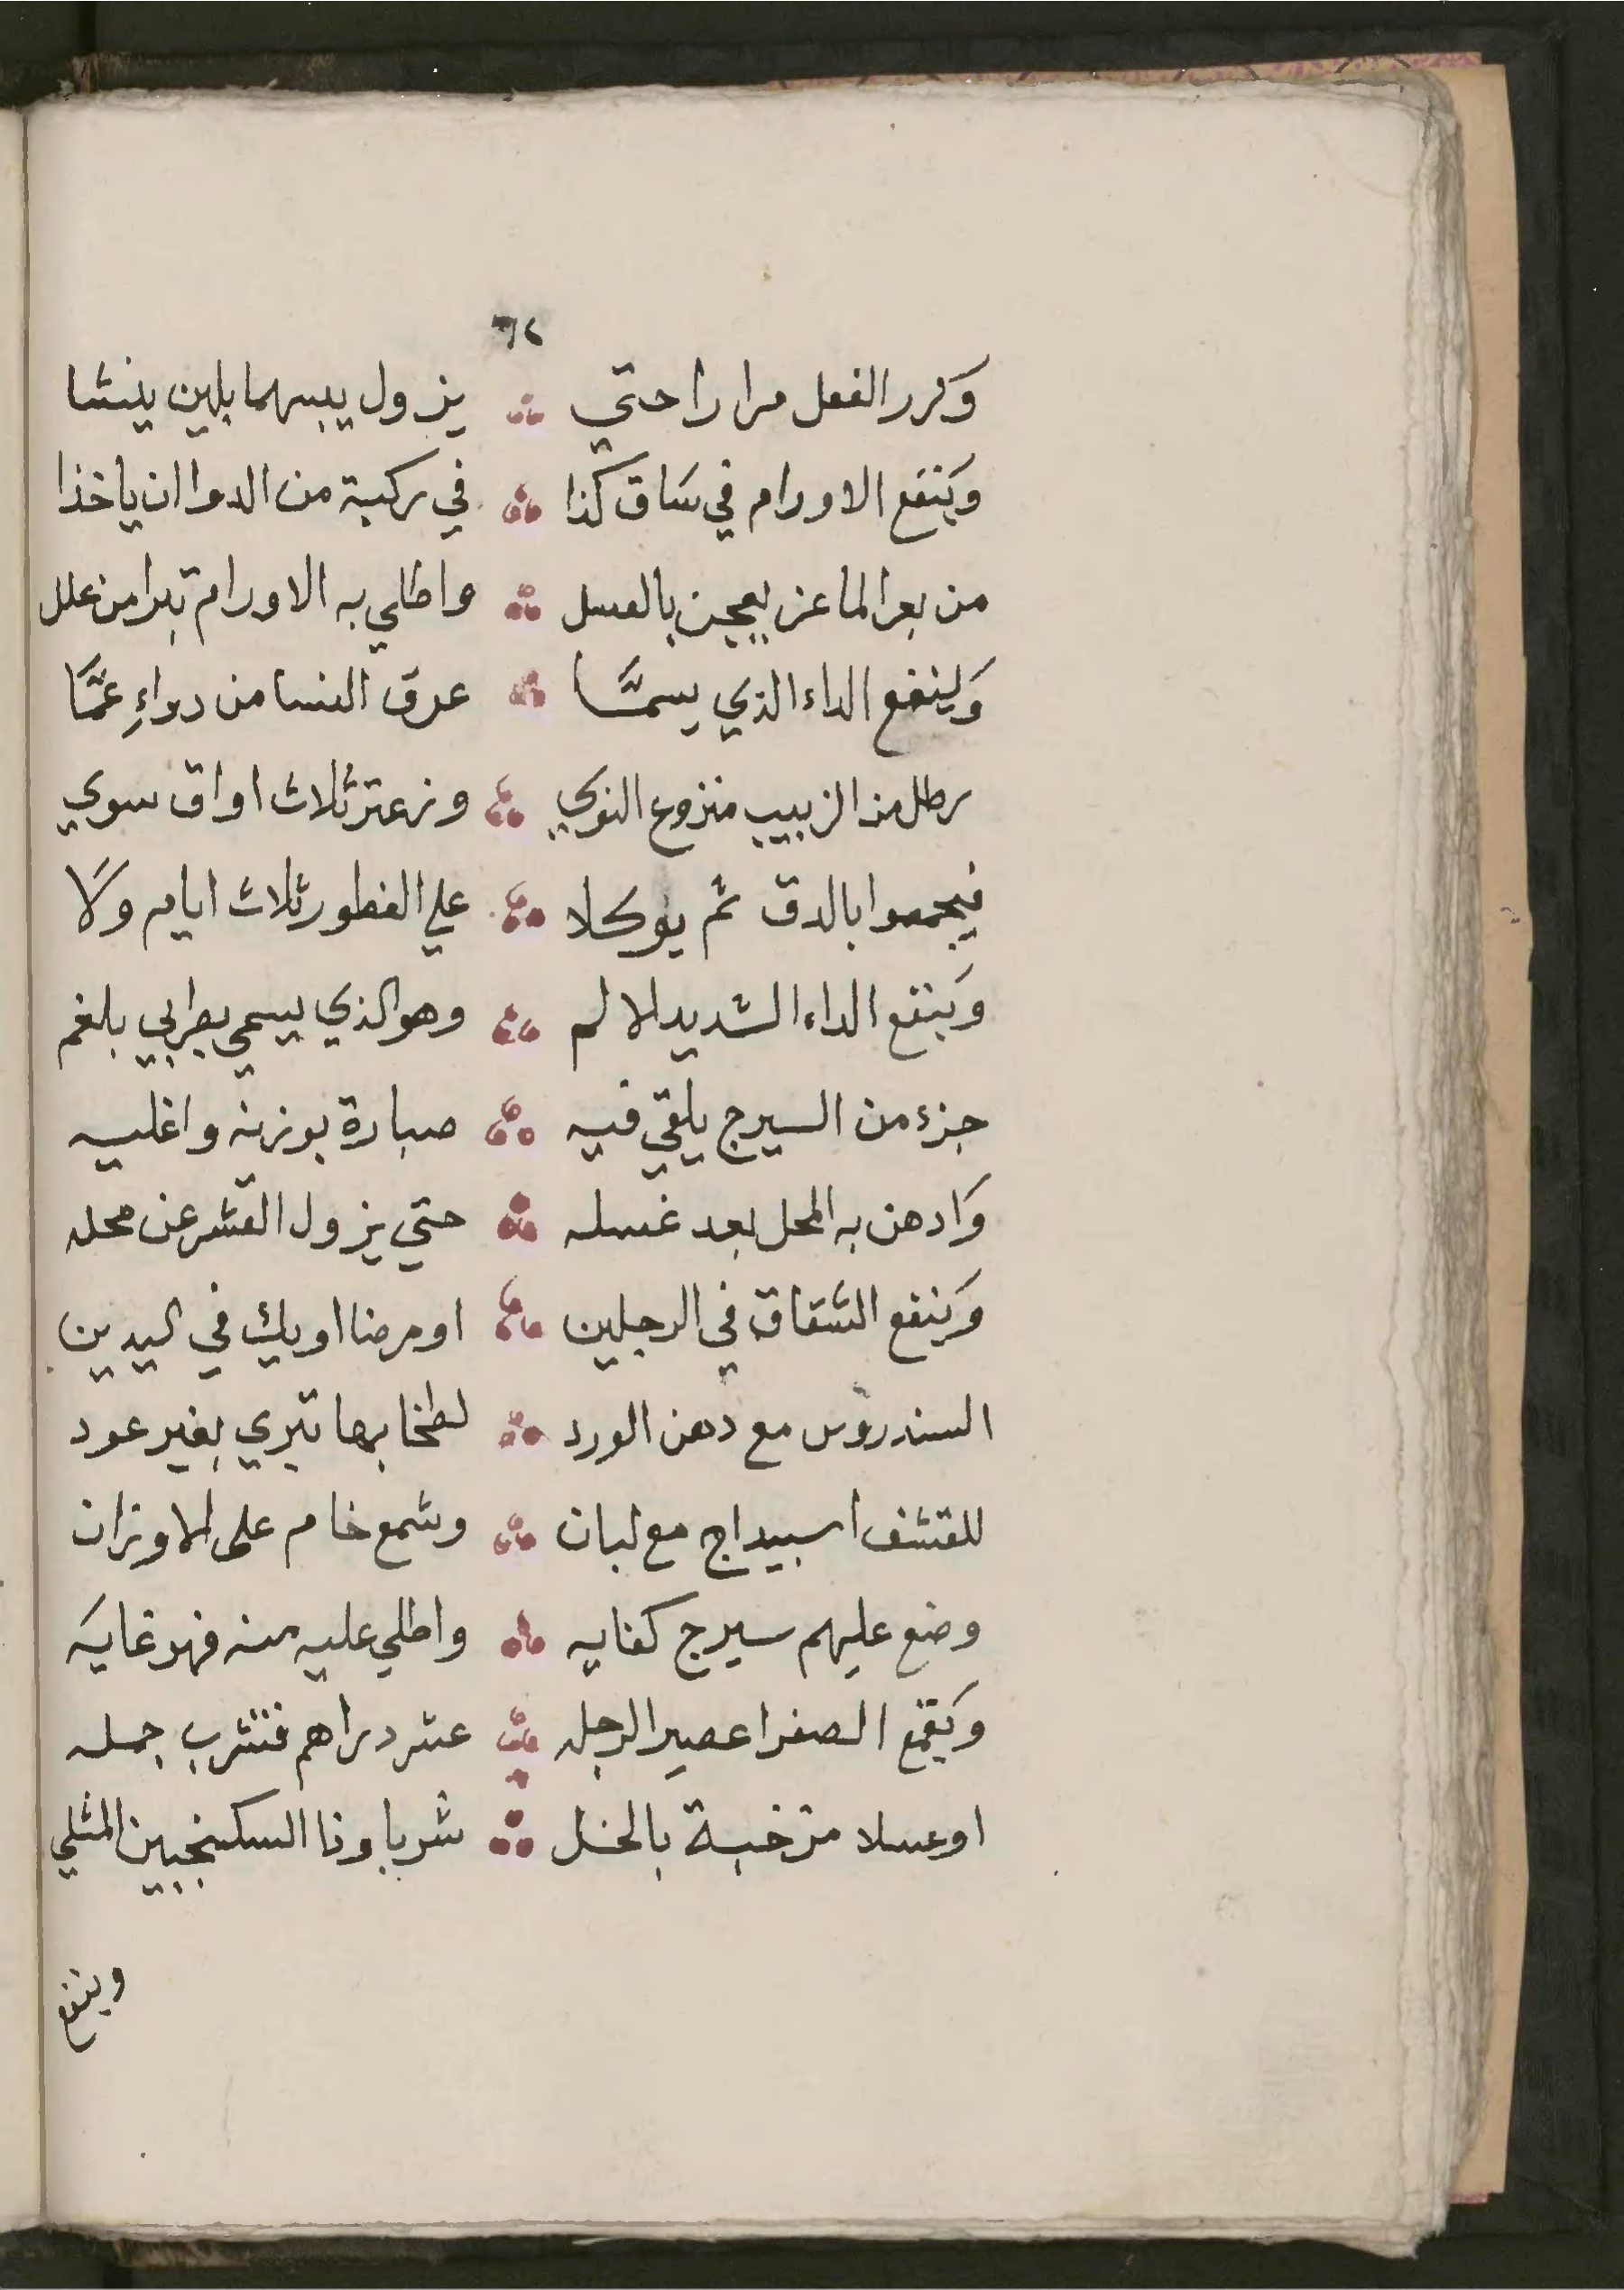 ٦٢
وَكرر الفعل مرارا حتي يزول يبسهما بلين ينشا
وَينفع الاورام في سَاق كذا في ركبة من الدوا ان ياخذا
من بعر الماعز يعجن بالعسل واطلي به الاورام تبرا من علل
وَلينفع الداء الذي يسمَّا عرق النسا من دواءِ عمَّا
رطل من الزبيب منزوع النوي وزعتر ثلاث اواق سوي
فيجمعوا بالدق ثم يوكلا علي الفطور ثلاث ايام وِلَا
وَينفع الداء الشديد الالم وهو الذي يسمي بطرابي بلغم
جزء من السيرج يلقي فيه صبارة بوزنه واغليه
وَادهن به المحل بعد غسله حتي يزول القشر عن محله
وَينفع الشقاق في الرجلين او مرضا او يك في اليدين
السندروس مع دهن الورد لطخا بها تبري بغير عود
للقشف اسبيداج مع لبان وشمع خام على الاوزان
وضع عليهم سيرج كفايه واطلي عليه منه فهو غايَه
وَيقمع الصفرا عصير الرجله عشر دراهم فتشرب جمله
او عسلا بالخل شربا ونا السكنجبين المثلي
وينفع